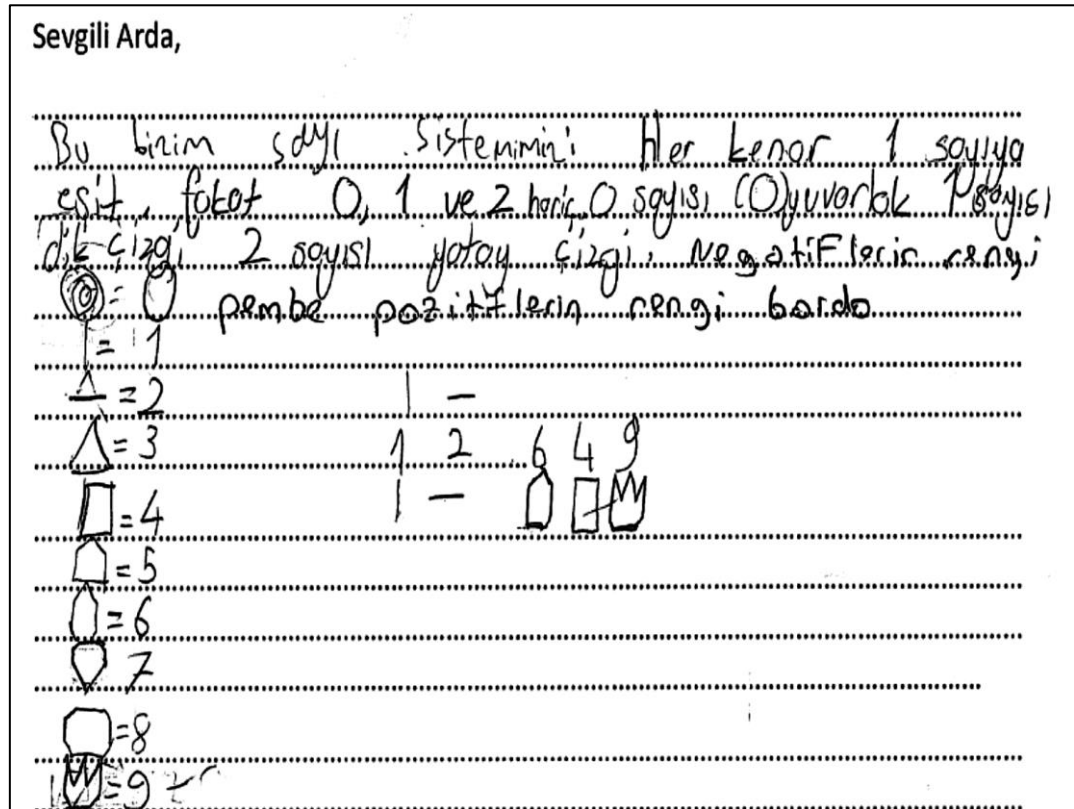 Sevgili Arda,
Bu bizim sayı sistemimiz: Her kenar 1 sayıya
eşit, fakat 0, 1 ve 2 hariç. 0 sayısı (O) yuvarlak 1 sayısı
dik çizgi 2 sayısı yatay çizgi. Negatiflerin rengi
= 0 pembe pozitiflerin rengi bordo
= 1
= 2
= 3 1 2 6 4 9
= 4
= 5
= 6
7
= 8
= 9